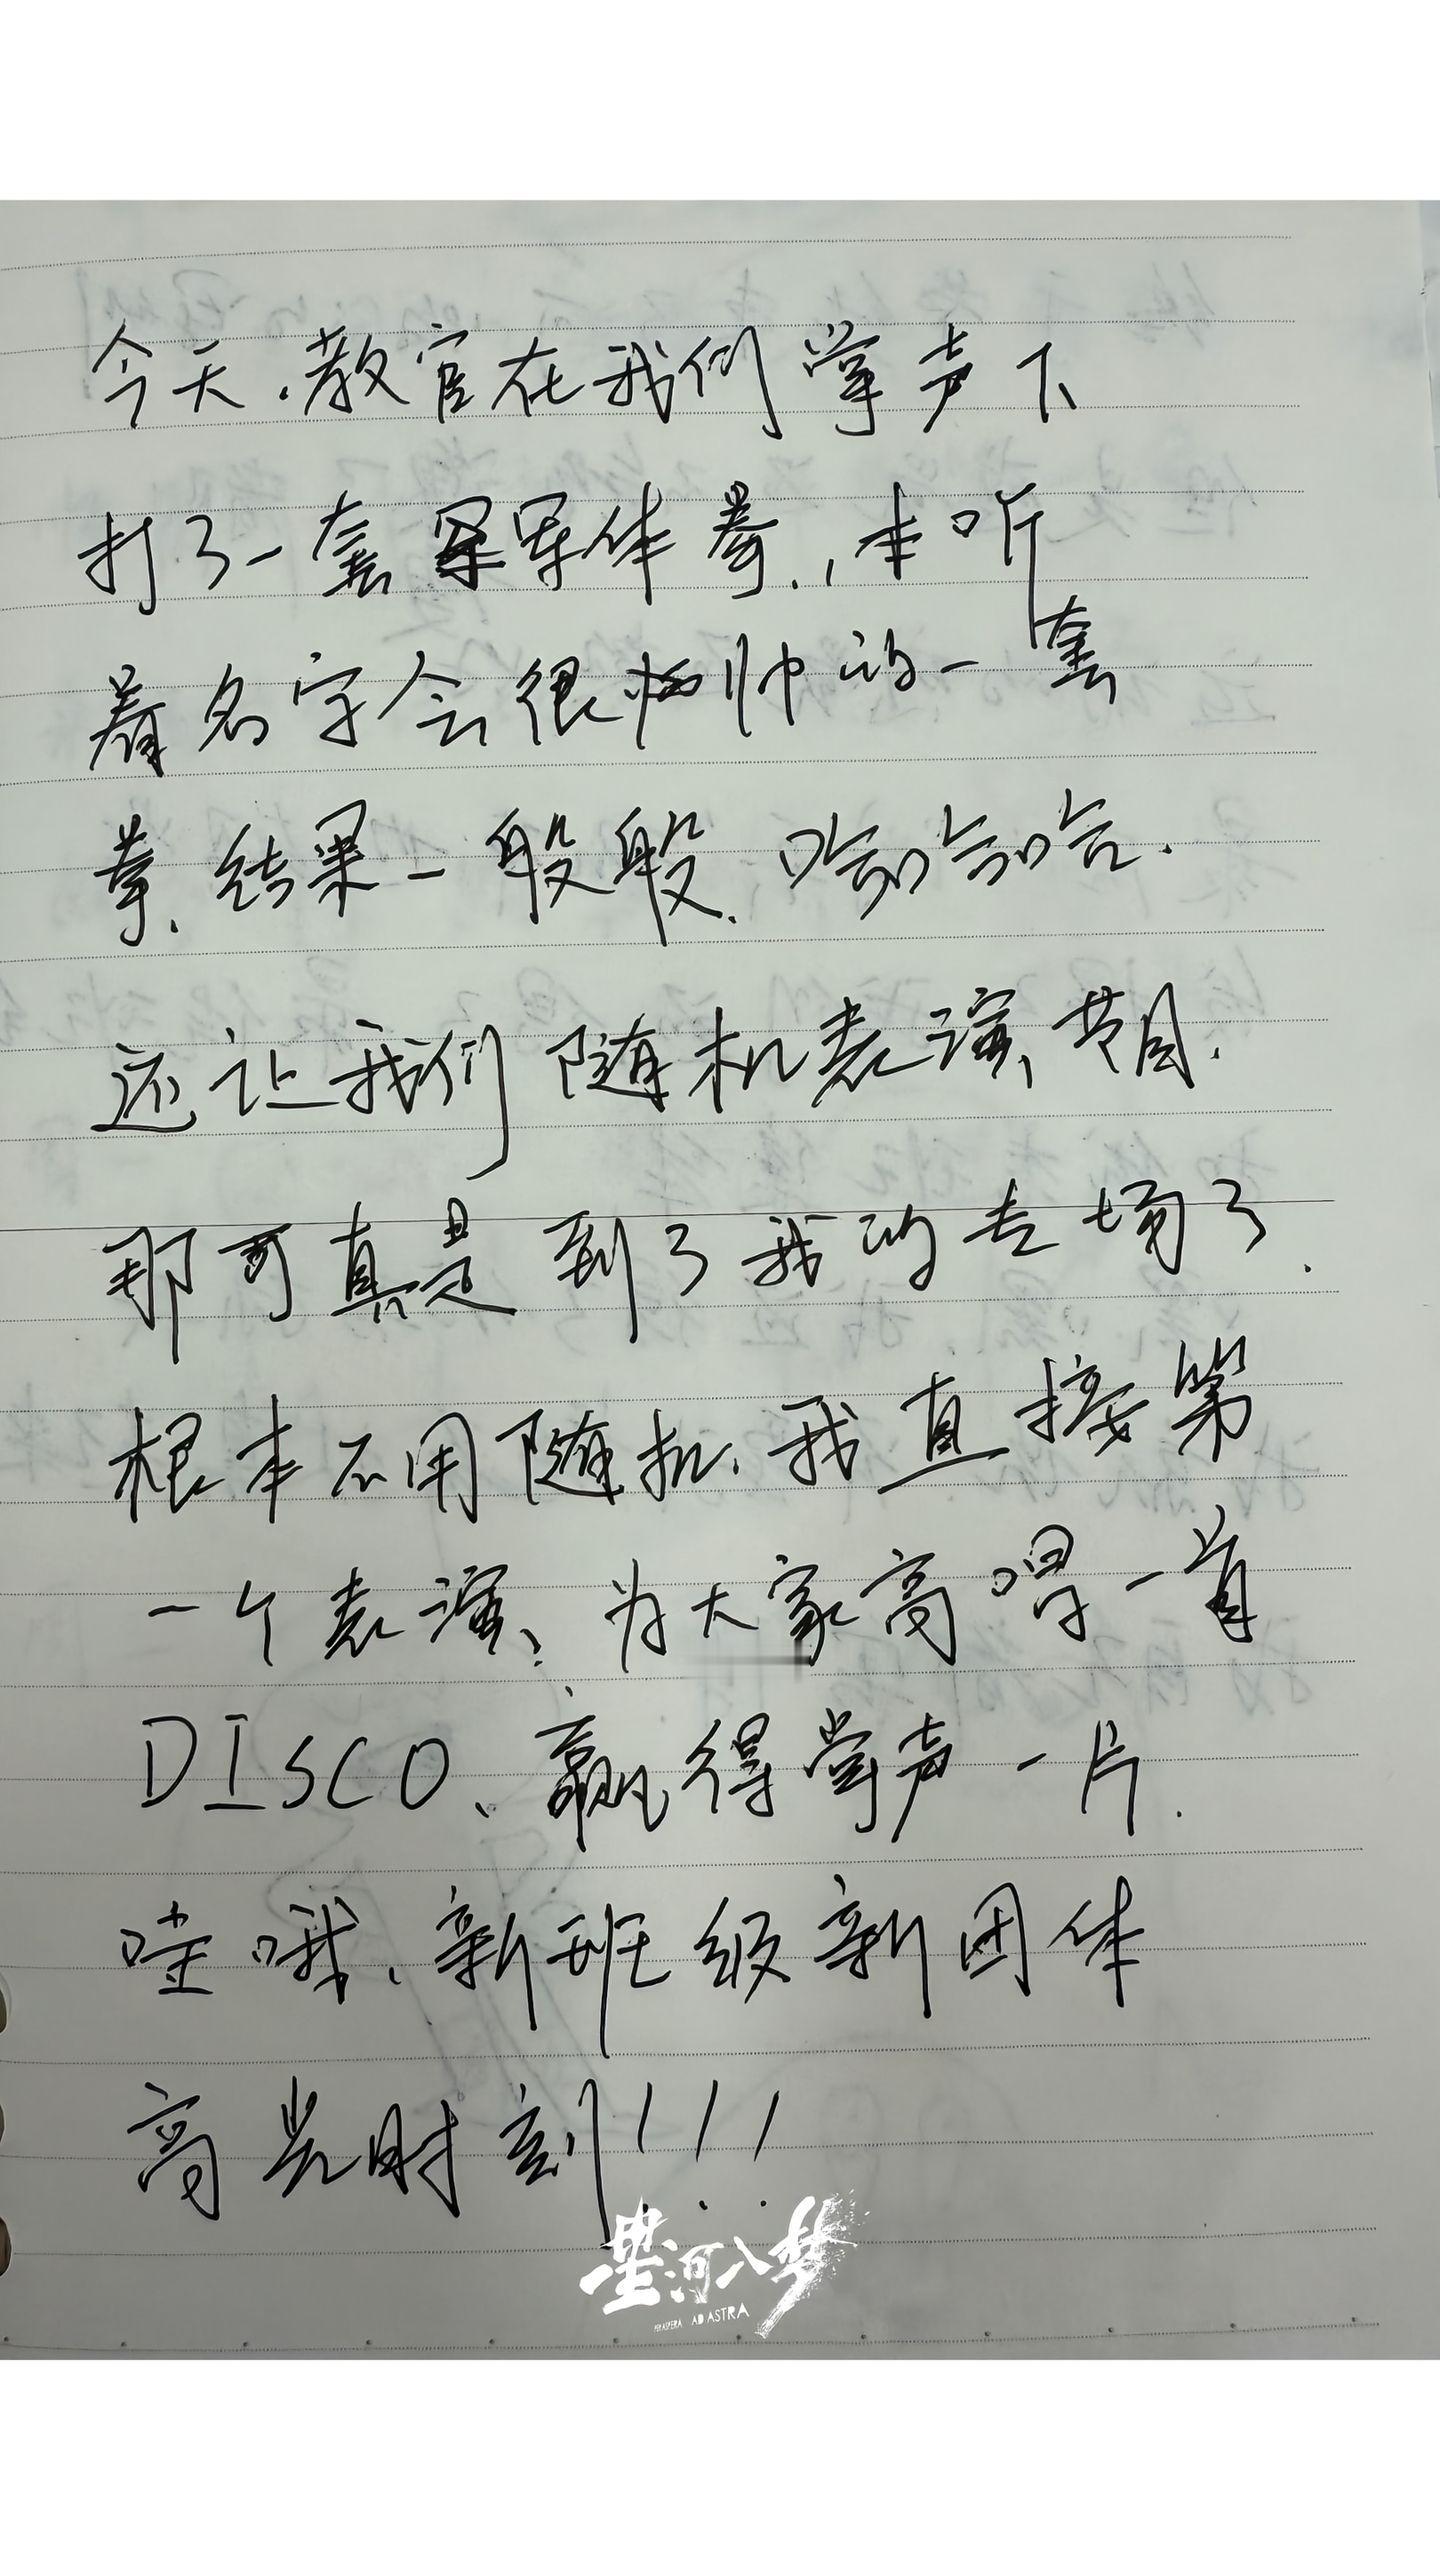 今天，教官在我们掌声下
打了一套军体拳，本听
着名字会很帅的一套
拳，结果一般般，哈哈哈.
还让我们随机表演节目.
那可真是到了我的专场了.
根本不用随机，我直接第
一个表演，为大家高唱一首
DISCO、赢得掌声一片.
哇哦，新班级新团体
高光时刻!!!
星河入梦
PER ASPERA AD ASTRA